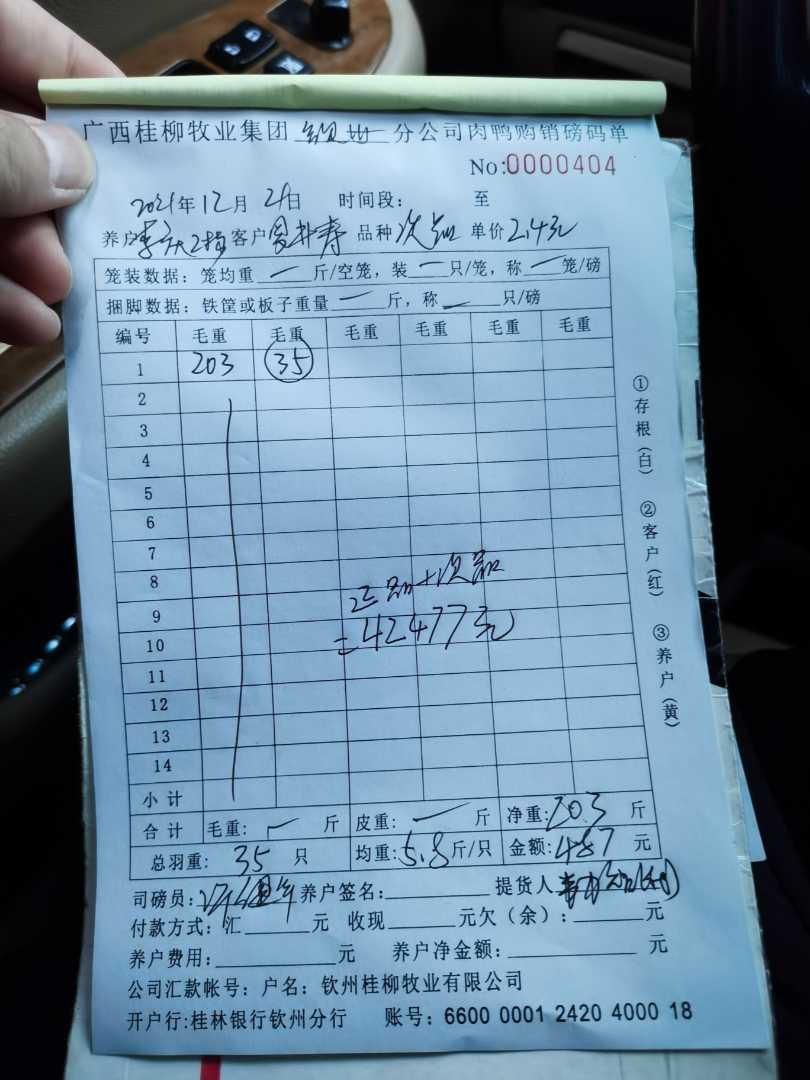 广西桂柳牧业集团 钦州 分公司肉鸭购销磅码单
No:0000404
2021年12月21日 时间段: 至
养户 客户 品种次品 单价2.4元
笼装数据: 笼均重一斤/空笼，装一只/笼，称一笼/磅
捆脚数据: 铁筐或板子重量一斤，称一只/磅
编号 毛重 毛重 毛重 毛重 毛重 毛重
1 203 35
2
3
4
5
6
7
8
正品+次品
9
=42477元
10
11
12
13
14
小计
合计 毛重:一斤 皮重:一斤 净重:203斤
总羽重: 35只 均重:5.8斤/只 金额:487元
司磅员: 养户签名: 提货人
付款方式: 汇 元 收现 元欠（余）: 元
养户费用: 元 养户净金额: 元
公司汇款帐号: 户名: 钦州桂柳牧业有限公司
开户行:桂林银行钦州分行 账号: 6600 0001 2420 4000 18
①存根(白) ②客户(红) ③养户(黄)